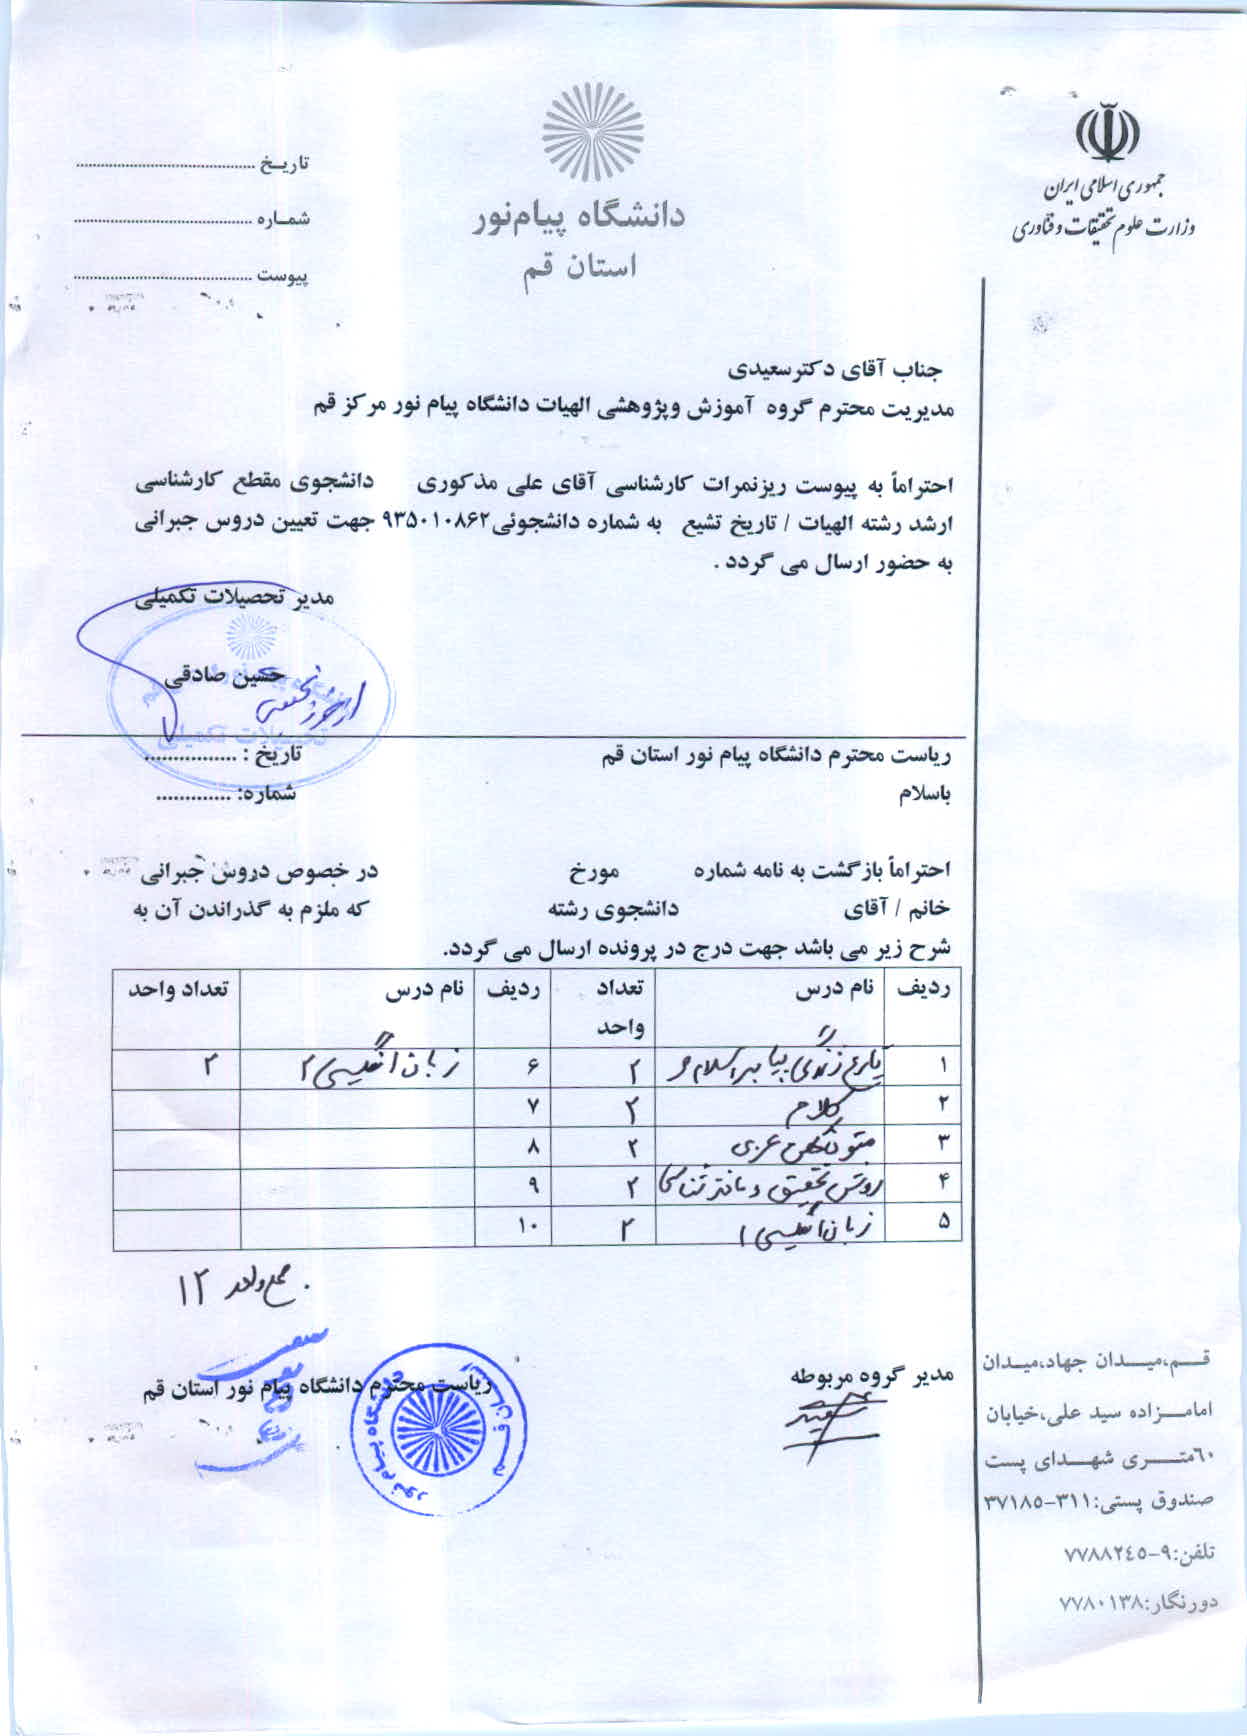 جمهوری اسلامی ایران
وزارت علوم تحقیقات و فناوری
دانشگاه پیام‌نور
استان قم
تاریـخ ........................................
شمـاره ........................................
پیوست ........................................
جناب آقای دکترسعیدی
مدیریت محترم گروه آموزش وپژوهشی الهیات دانشگاه پیام نور مرکز قم
احتراماً به پیوست ریزنمرات کارشناسی آقای علی مذکوری دانشجوی مقطع کارشناسی
ارشد رشته الهیات / تاریخ تشیع به شماره دانشجوئی ۹۳۵۰۱۰۸۶۲ جهت تعیین دروس جبرانی
به حضور ارسال می گردد .
مدیر تحصیلات تکمیلی
حسین صادقی
تحصیلات تکمیلی
ریاست محترم دانشگاه پیام نور استان قم
تاریخ : ................
باسلام
شماره: .............
احتراماً بازگشت به نامه شماره مورخ در خصوص دروس جبرانی
خانم / آقای دانشجوی رشته که ملزم به گذراندن آن به
شرح زیر می باشد جهت درج در پرونده ارسال می گردد.
ردیف نام درس تعداد واحد ردیف نام درس تعداد واحد
۱ تاریخ زندگی پیامبر اسلام ۲ ۶ زبان انگلیسی ۲ ۲
۲ کلام ۲ ۷
۳ متون عربی ۲ ۸
۴ روش تحقیق و ماخذشناسی ۲ ۹
۵ زبان انگلیسی ۱ ۲ ۱۰
جمع واحد ۱۲
مدیر گروه مربوطه
ریاست محترم دانشگاه پیام نور استان قم
دانشگاه پیام نور
قـــم،میـــدان جهاد،میـدان
امامـــزاده سید علی،خیابان
۶۰متـــــری شهـــدای پست
صندوق پستی:۳۱۱-۳۷۱۸۵
تلفن:۹-۷۷۸۸۲٤۵
دورنگار:۷۷۸۰۱۳۸